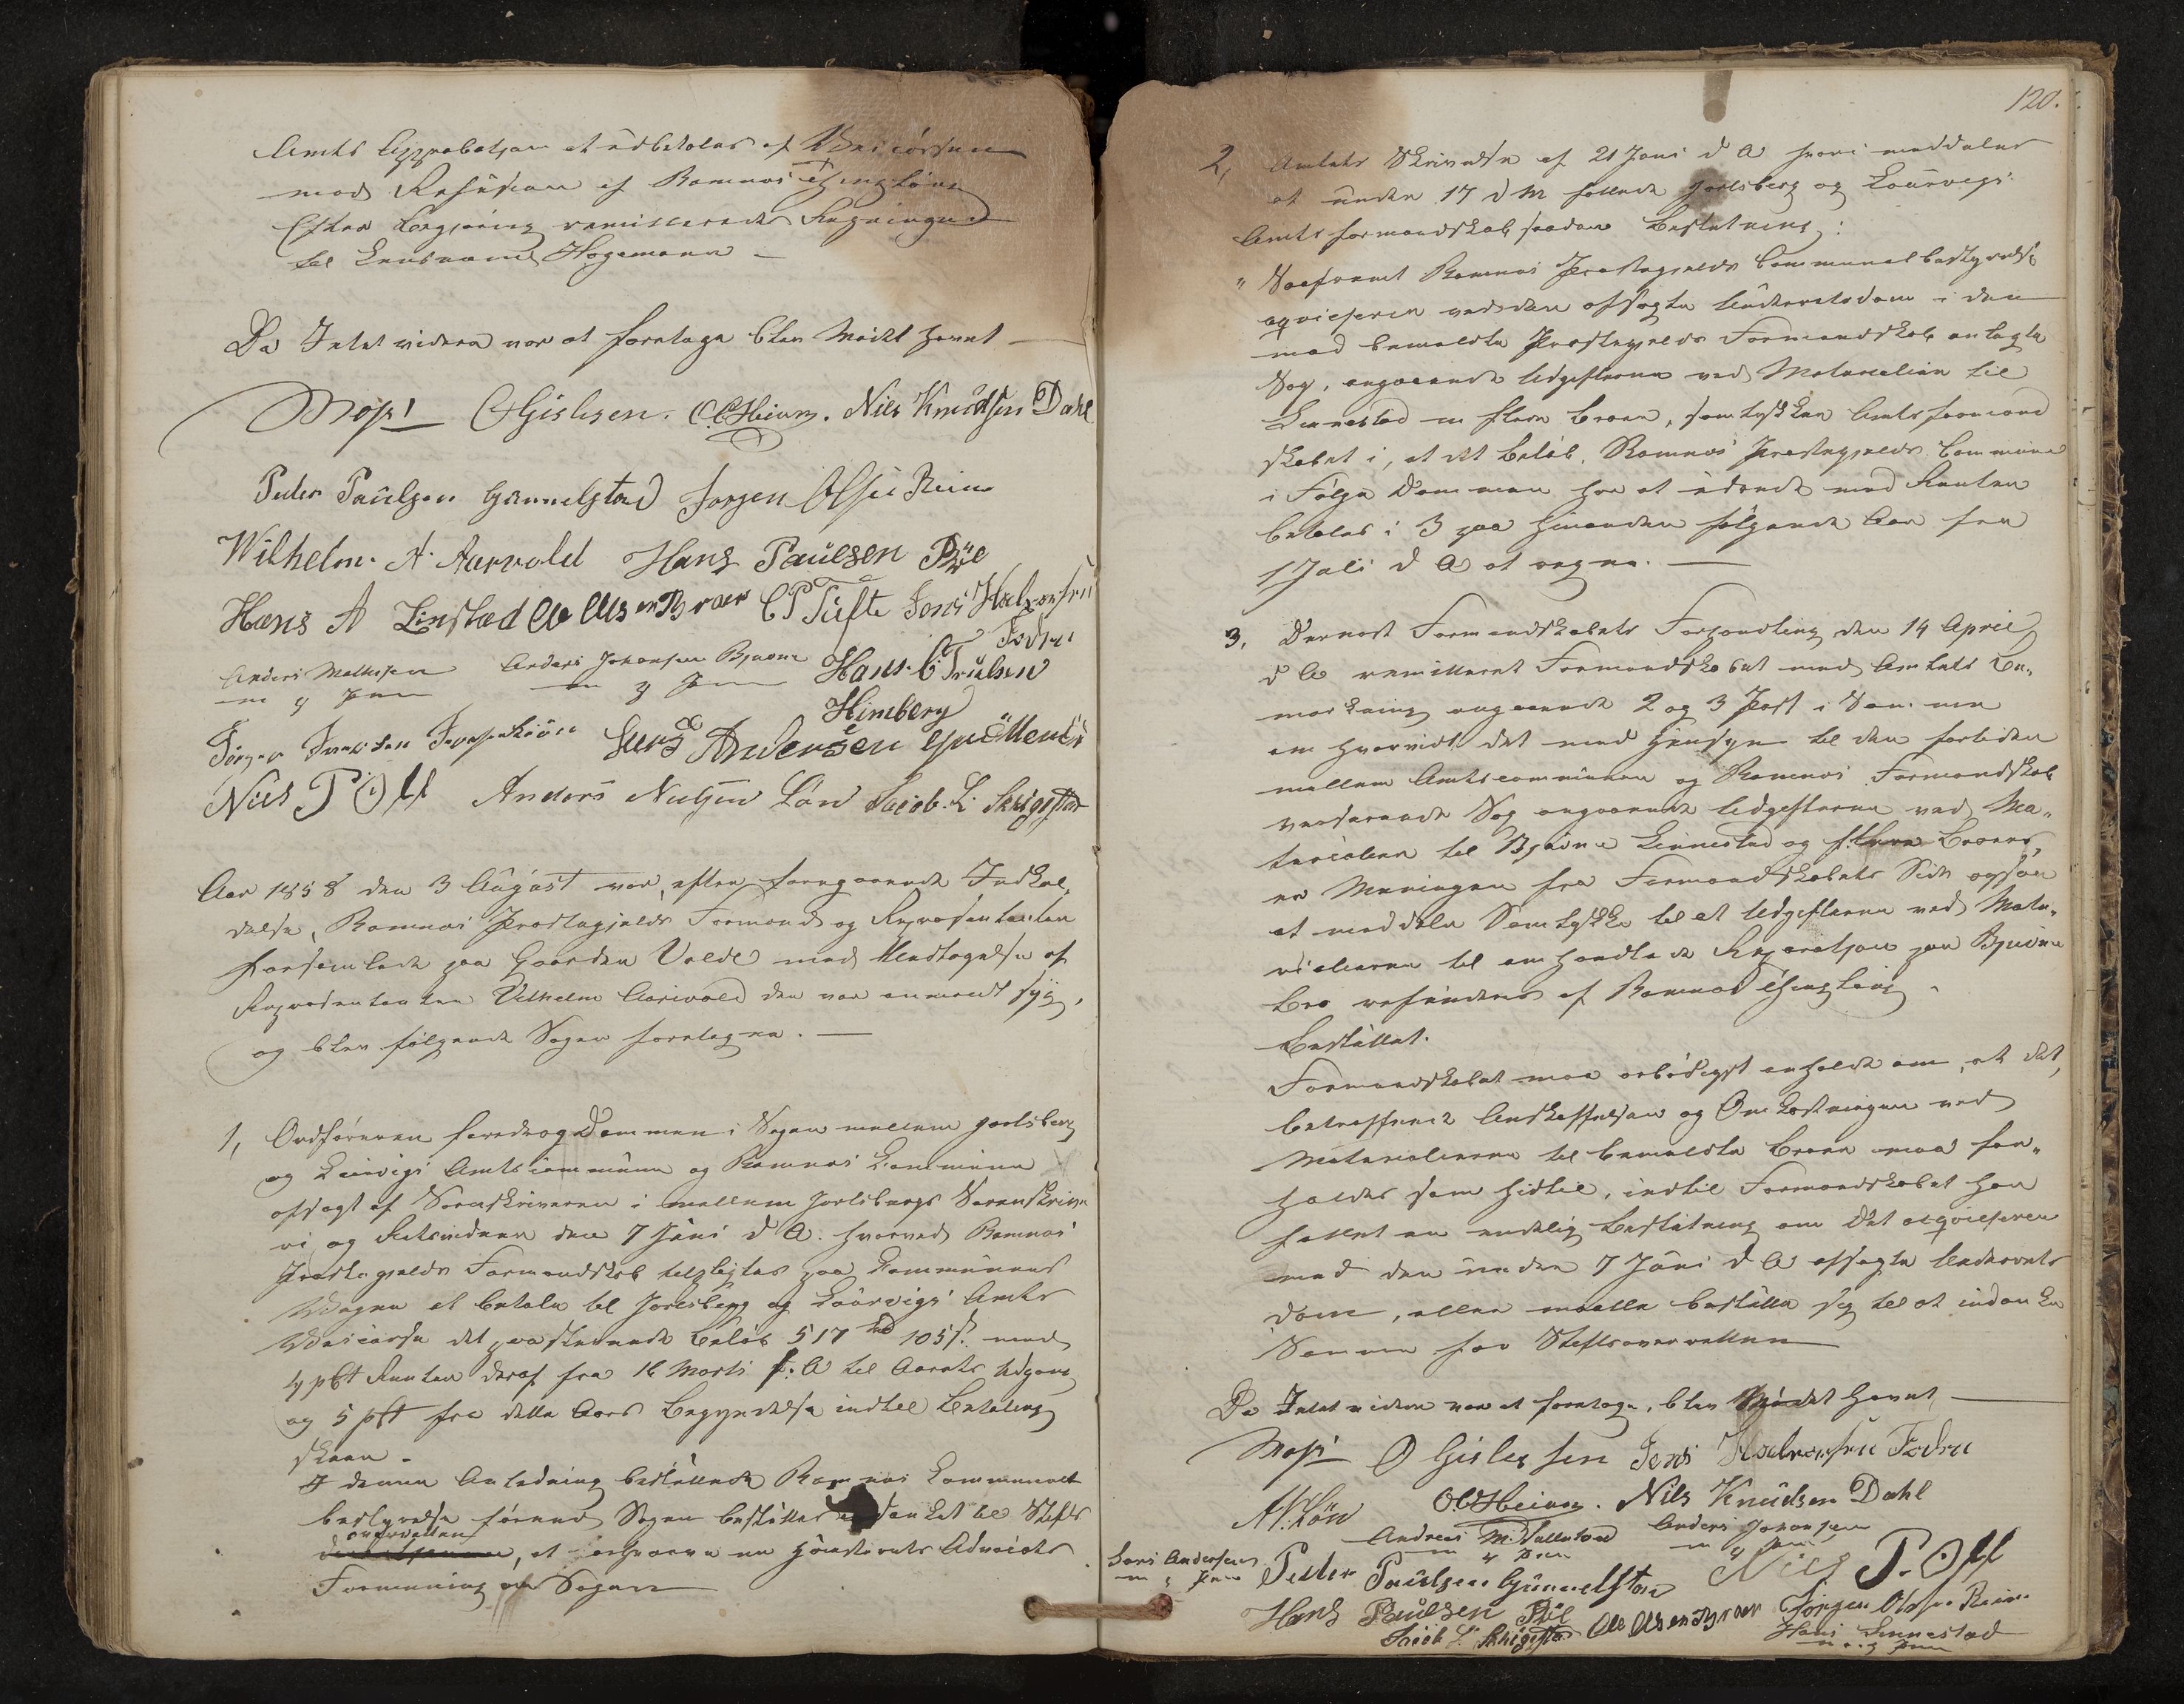 Amts Approbatjon at udbetales af Veicassen
mod Refusion af Ramnæs Thinglaug
Efter Begjæring remitteredes Regningen
til Lensmand Hagemann —
Da Intet videre var at foretage blev Mødet hævet —
Moss CGislesen. OCHeian. Nils Knudsen Dahl
Peder Paulsen Gunnelstad Jørgen Olsen Rein
Wilhelm. A. Aarvold Hans Paulsen Bøe
Hans A Linstad Ole Olsen Braar CP Tufte Jens Halvorsen
Fadum
Anders Mathisen Anders Johansen Bjuerne Hans C Truelsen
m f Pen m f Pen
Himberg
Jørgen Iversen Lars Andersen
Nils P Oll Anders Nielsen Løn Jacob L. Skrigstad
Aar 1858 den 3 August var, efter foregaaende Indkal-
delse, Ramnæs Præstegjælds Formænd og Repræsentanter
forsamlede paa Gaarden Valle med Undtagelse af
Repræsentanten Vilhelm Aarvold der var anmeldt syg,
og blev følgende Sager foretagne. —
1, Ordføreren foredrog Dommen i Sagen mellem Jarlsberg
og Laurvigs Amtscommune og Ramnæs Commune
afsagt af Sorenskriveren i mellem Jarlsbergs Sorenskrive-
ri og Retsvidner den 7 Juni d A. hvorved Ramnæs
Præstegjælds Formandskab tilpligtes paa Communens
Vegne at betale til Jarlsberg og Laurvigs Amts
Veicasse det paastævnede Beløb 517 Spd 105 s. med
4 pCt Renter deraf fra 16 Marts f. A til Aarets Udgang
og 5 pCt fra dette Aars Begyndelse indtil Betaling
skeer.
I denne Anledning besluttede Ramnæs Communal-
bestyrelse førend Sagen besluttes indanket til Stifts
overretten
, at erhverve en Høiesterets Advocats
Formening om Sagen
120.
2, Amtets Skrivelse af 21 Juni d A hvori meddeles
at under 17 d M fattede Jarlsberg og Laurvigs
Amtsformandskab saadan Beslutning:
" Saafremt Ramnæs Præstegjælds Communalbestyrelse
aqvieserer ved den afsagte Underretsdom i den
mod bemeldte Præstegjælds Formandskab anlagte
Sag, angaaende Udgifterne ved Materialier til
Linnestad m flere Broer, samtykker Amtsformand
skabet i, at det Beløb, Ramnæs Præstegjælds Commune
i Følge Dommen har at udrede med Renter
betales i 3 paa hinanden følgende Aar fra
1 Juli d A at regne. —
3. Dernæst Formandskabets Forhandling den 14 April
d A remitteret Formandskabet med Amtets Be-
mærkning angaaende 2 og 3 Post i Samme
om hvorvidt det med Hensyn til den fortiden
mellem Amtscommunen og Ramnæs Formandskab
verserende Sag angaaende Udgifterne ved Ma-
terialier til Bjuerne Linnestad og flere Broer,
er Meningen fra Formandskabets Side ogsaa
at meddele Samtykke til at Udgifterne ved Mate-
rialierne til omhandlede Reparatjon paa Bjuerne
Bro refunderes af Ramnæs Thinglaug.
Besluttet.
Formandskabet maa ærbødigst anholde om, at det,
betreffende Anskaffelsen og Omkostningen ved
Materialierne til bemeldte Broer maa for-
holdes som hidtil, indtil Formandskabet har
fattet en endelig Beslutning om det aqvieserer
med den under 7 Juni d A afsagte Underrets
dom, eller maatte beslutte sig til at indanke
Samme for Stiftsoverretten
Da Intet videre var at foretage, blev Mødet hævet —
Moss O Gislessen Jens Halvorsen Fadum
A N. Løn OCHeian. Nils Knudsen Dahl
Andreas M. Anders Johansen
m f Pen m f Pen
Lars Andersen Peder Paulsen Gunnelstad Nils P. Oll
m f Pen
Hans Paulsen Bøe Ole Olsen Braar Jørgen Olsen Rein
Jacob L. Skrigstad Hans Linnestad
m f Pen